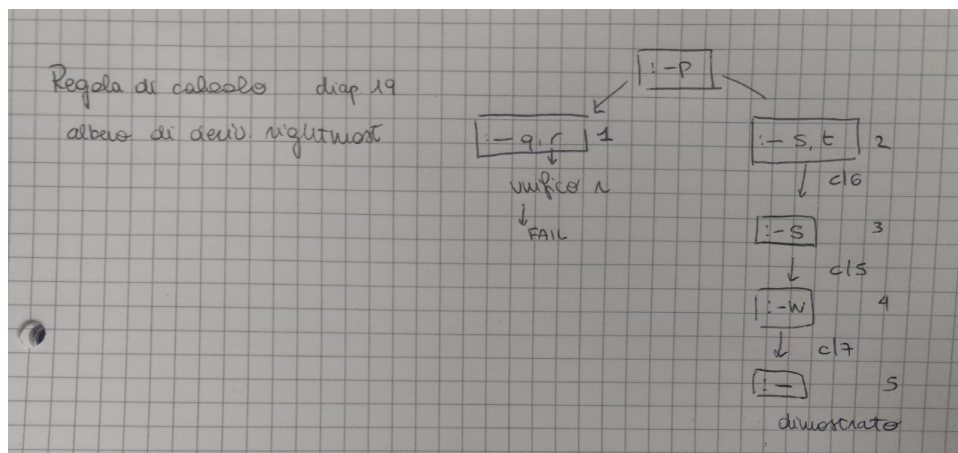 Regola di calcolo diap 19
albero di deriv. rightmost
:- p
:- q, r 1
unifico r
FAIL
:- s, t 2
cl6
:- s 3
cl5
:- w 4
cl7
:- 5
dimostrato